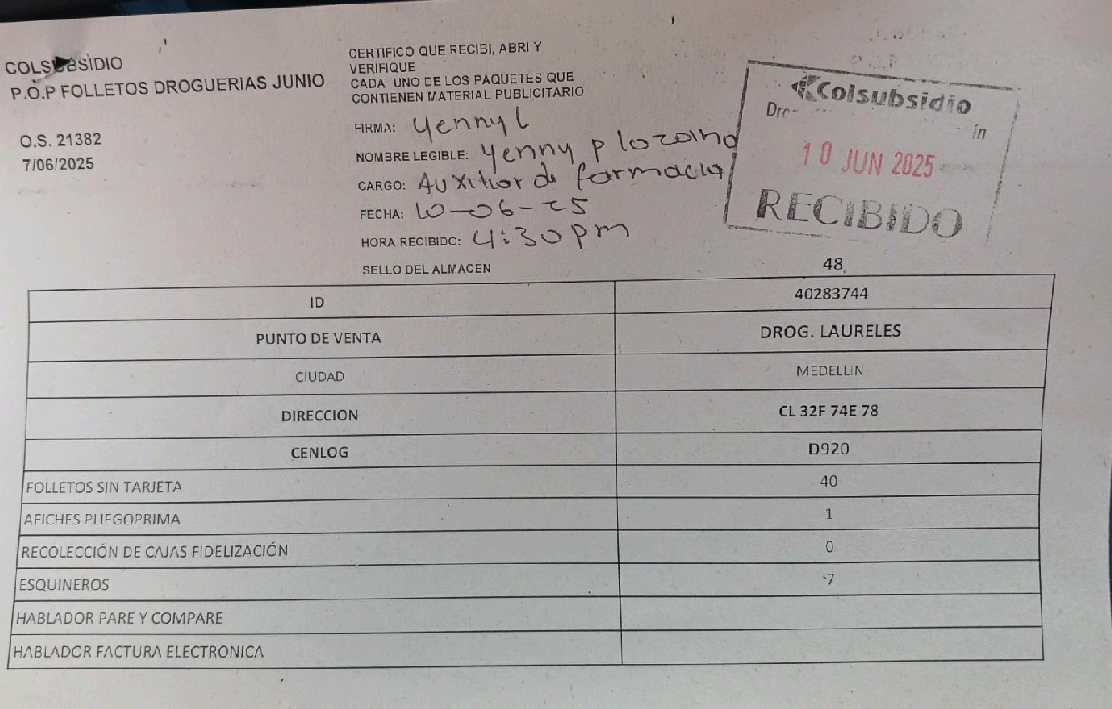 COLSUBSIDIO
P.O.P FOLLETOS DROGUERIAS JUNIO
O.S. 21382
7/06/2025
CERTIFICO QUE RECIBI, ABRI Y
VERIFIQUE
CADA UNO DE LOS PAQUETES QUE
CONTIENEN MATERIAL PUBLICITARIO
FIRMA: Yenny L
NOMBRE LEGIBLE: Yenny P Lozano
CARGO: Auxiliar de farmacia
FECHA: 10-06-25
HORA RECIBIDO: 4:30 pm
SELLO DEL ALMACEN
Colsubsidio
10 JUN 2025
RECIBIDO
48
ID 40283744
PUNTO DE VENTA DROG. LAURELES
CIUDAD MEDELLIN
DIRECCION CL 32F 74E 78
CENLOG D920
FOLLETOS SIN TARJETA 40
AFICHES PLIEGOPRIMA 1
RECOLECCIÓN DE CAJAS FIDELIZACIÓN 0
ESQUINEROS 7
HABLADOR PARE Y COMPARE
HABLADOR FACTURA ELECTRONICA